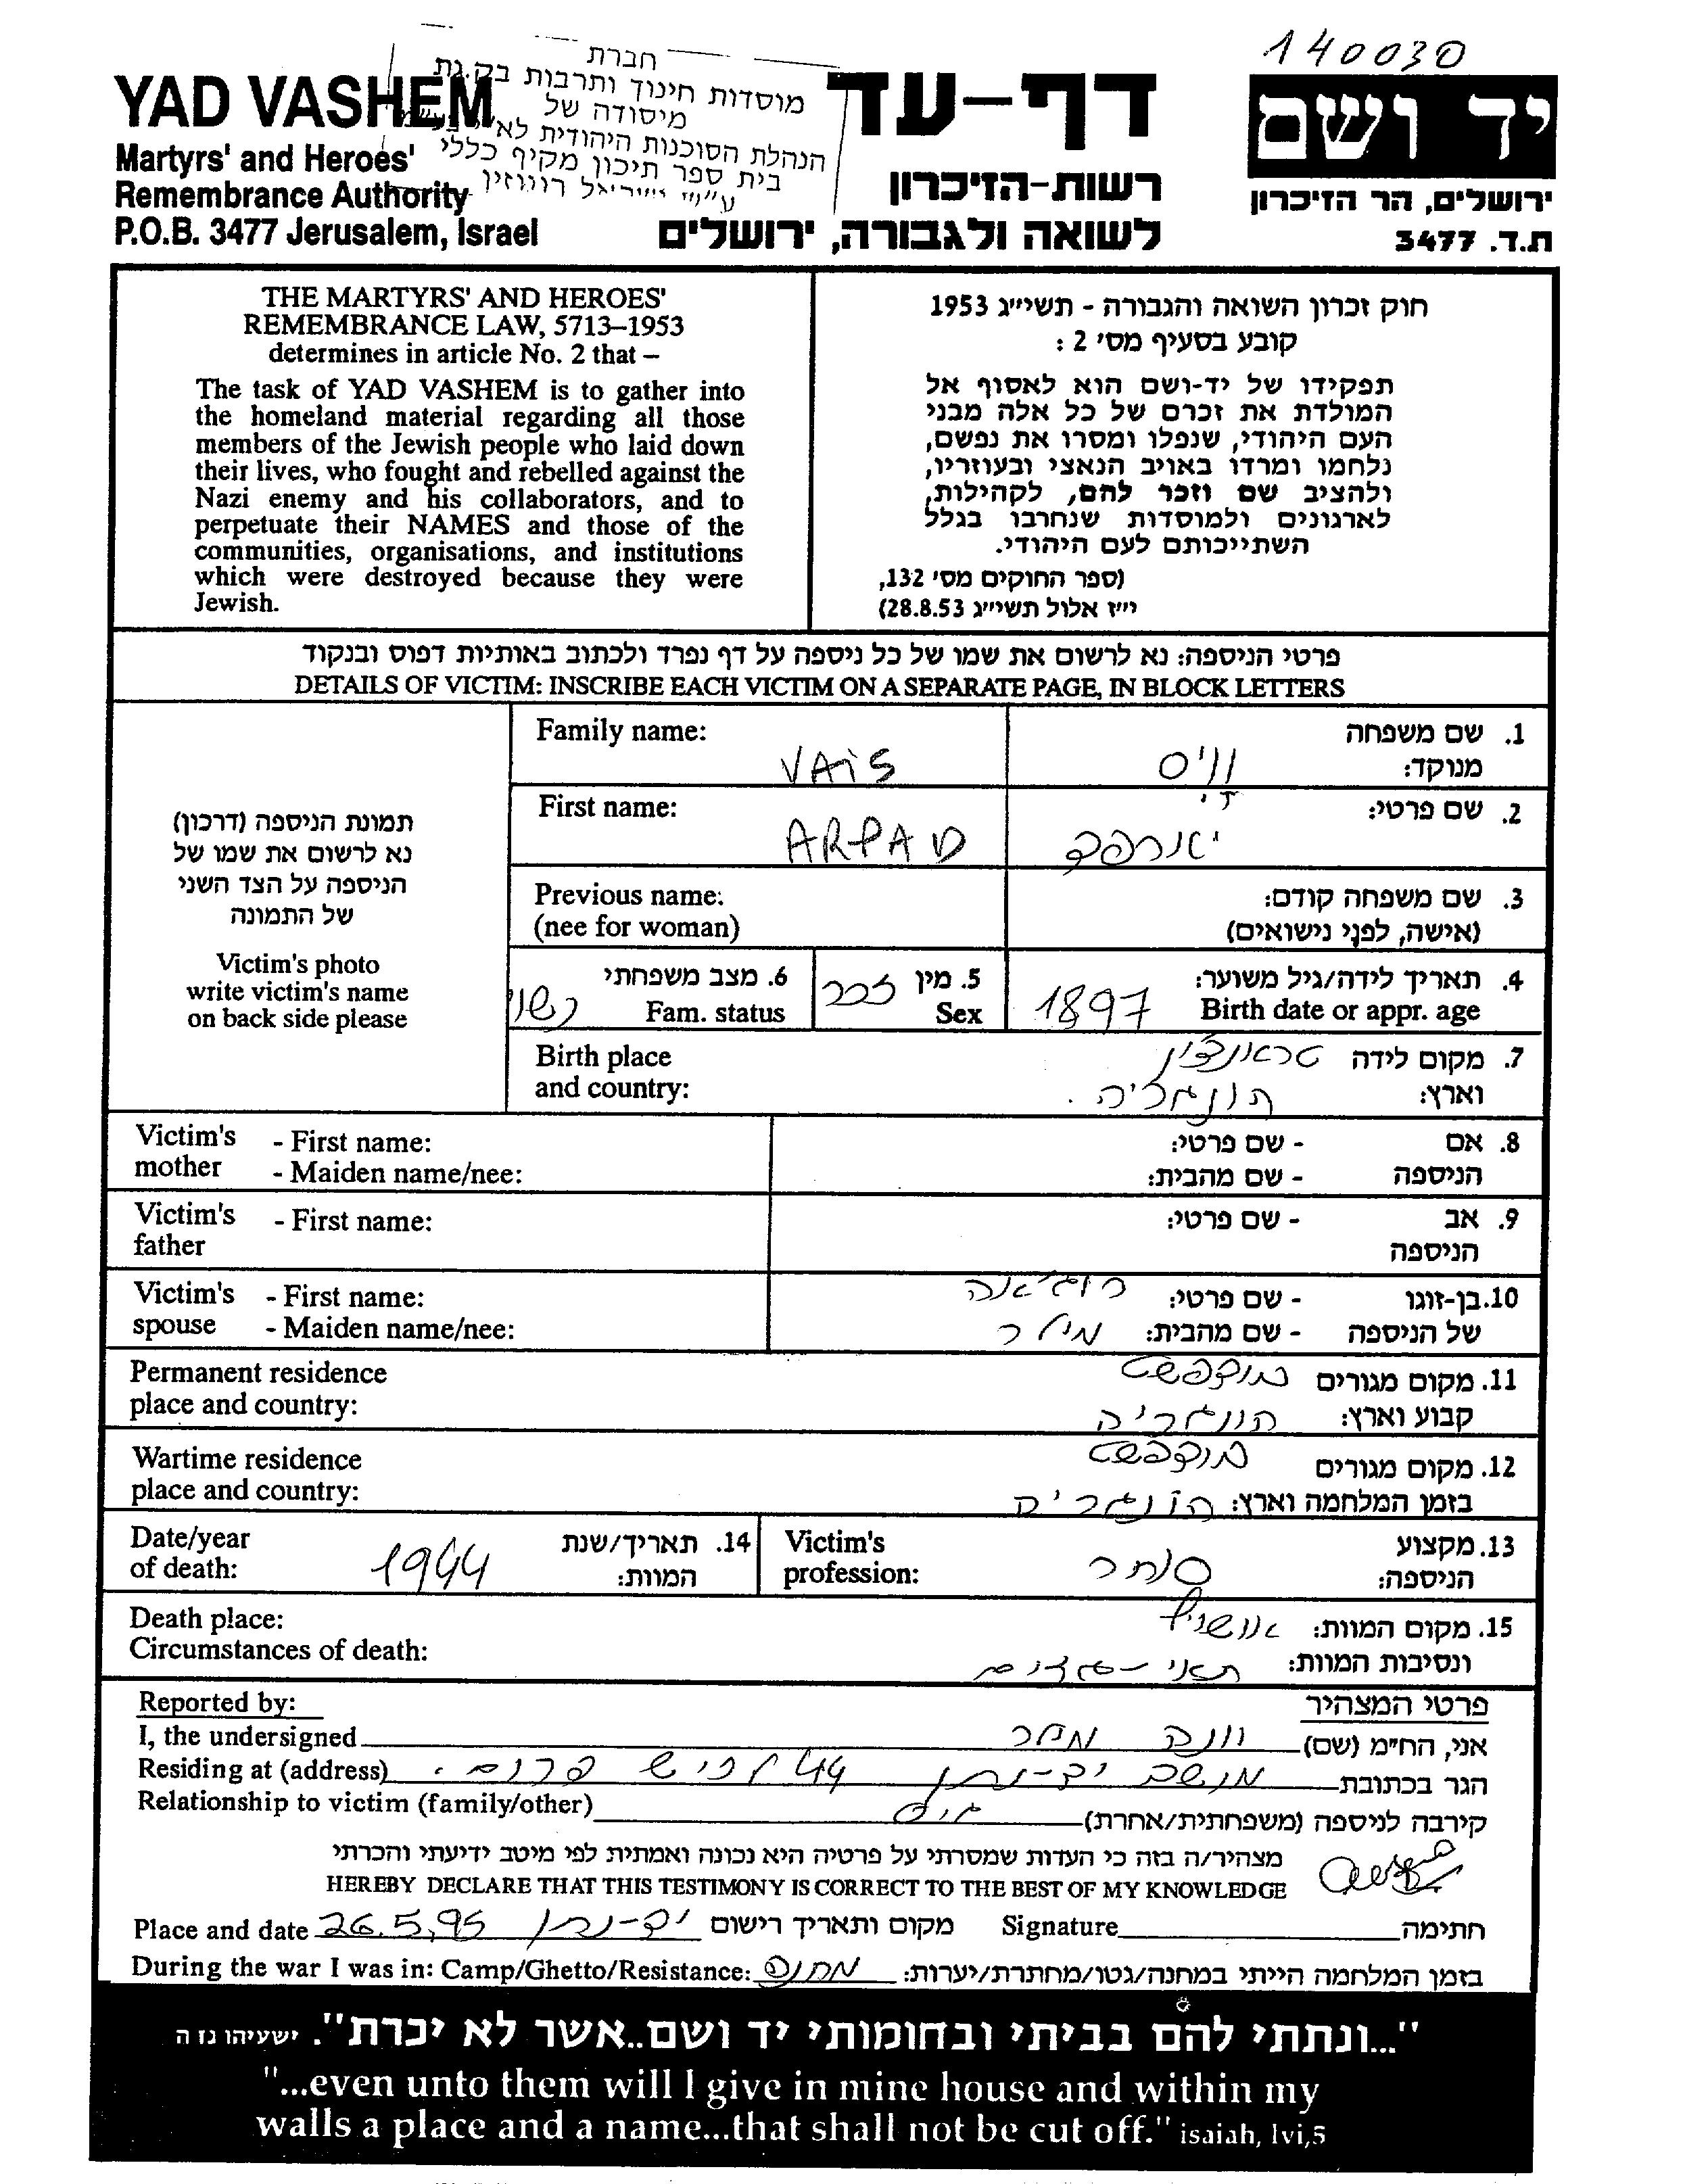 140030
YAD VASHEM
Martyrs' and Heroes'
Remembrance Authority
P.O.B. 3477 Jerusalem, Israel
חברת
מוסדות חינוך ותרבות בק.גת
מיסודה של
הנהלת הסוכנות היהודית לא"י בע"מ
בית ספר תיכון מקיף כללי
ע"ש ישראל רוגוזין
דף-עד
רשות-הזיכרון
לשואה ולגבורה, ירושלים
יד ושם
ירושלים, הר הזיכרון
ת.ד. 3477
THE MARTYRS' AND HEROES'
REMEMBRANCE LAW, 5713–1953
determines in article No. 2 that –
The task of YAD VASHEM is to gather into
the homeland material regarding all those
members of the Jewish people who laid down
their lives, who fought and rebelled against the
Nazi enemy and his collaborators, and to
perpetuate their NAMES and those of the
communities, organisations, and institutions
which were destroyed because they were
Jewish.
חוק זכרון השואה והגבורה - תשי״ג 1953
קובע בסעיף מס׳ 2 :
תפקידו של יד-ושם הוא לאסוף אל
המולדת את זכרם של כל אלה מבני
העם היהודי, שנפלו ומסרו את נפשם,
נלחמו ומרדו באויב הנאצי ובעוזריו,
ולהציב שם וזכר להם, לקהילות,
לארגונים ולמוסדות שנחרבו בגלל
השתייכותם לעם היהודי.
(ספר החוקים מס׳ 132,
י״ז אלול תשי״ג 28.8.53)
פרטי הניספה: נא לרשום את שמו של כל ניספה על דף נפרד ולכתוב באותיות דפוס ובנקוד
DETAILS OF VICTIM: INSCRIBE EACH VICTIM ON A SEPARATE PAGE, IN BLOCK LETTERS
תמונת הניספה (דרכון)
נא לרשום את שמו של
הניספה על הצד השני
של התמונה
Victim's photo
write victim's name
on back side please
Family name: VAiS וויס 1. שם משפחה
מנוקד:
First name: ARPAD ארפד 2. שם פרטי:
Previous name: 3. שם משפחה קודם:
(nee for woman) (אישה, לפני נישואים)
4. תאריך לידה/גיל משוער: 1897 5. מין זכר 6. מצב משפחתי נשוי
Birth date or appr. age Sex Fam. status
Birth place 7. מקום לידה
and country: וארץ: הונגריה.
Victim's mother - First name: 8. אם - שם פרטי:
- Maiden name/nee: הניספה - שם מהבית:
Victim's father - First name: 9. אב - שם פרטי:
הניספה
Victim's spouse - First name: 10. בן-זוגו - שם פרטי:
- Maiden name/nee: של הניספה - שם מהבית: מילר
Permanent residence 11. מקום מגורים בודפשט
place and country: קבוע וארץ: הונגריה
Wartime residence 12. מקום מגורים בודפשט
place and country: בזמן המלחמה וארץ: הונגריה
Date/year of death: 1944 14. תאריך/שנת המוות:
Victim's profession: סוחר 13. מקצוע הניספה:
Death place: 15. מקום המוות: אושויץ
Circumstances of death: ונסיבות המוות: תאי-גזים
Reported by: פרטי המצהיר
I, the undersigned אני, החי״מ (שם) מילר
Residing at (address) הגר בכתובת מושב יד-נתן 44
Relationship to victim (family/other) קירבה לניספה (משפחתית/אחרת) גיס
מצהיר/ה בזה כי העדות שמסרתי על פרטיה היא נכונה ואמתית לפי מיטב ידיעתי והכרתי
HEREBY DECLARE THAT THIS TESTIMONY IS CORRECT TO THE BEST OF MY KNOWLEDGE
Place and date 26.5.95 יד-נתן מקום ותאריך רישום Signature חתימה
During the war I was in: Camp/Ghetto/Resistance: מחנה בזמן המלחמה הייתי במחנה/גטו/מחתרת/יערות:
"...ונתתי להם בביתי ובחומותי יד ושם..אשר לא יכרת". ישעיהו נו ה
"...even unto them will I give in mine house and within my
walls a place and a name...that shall not be cut off." isaiah, lvi,5